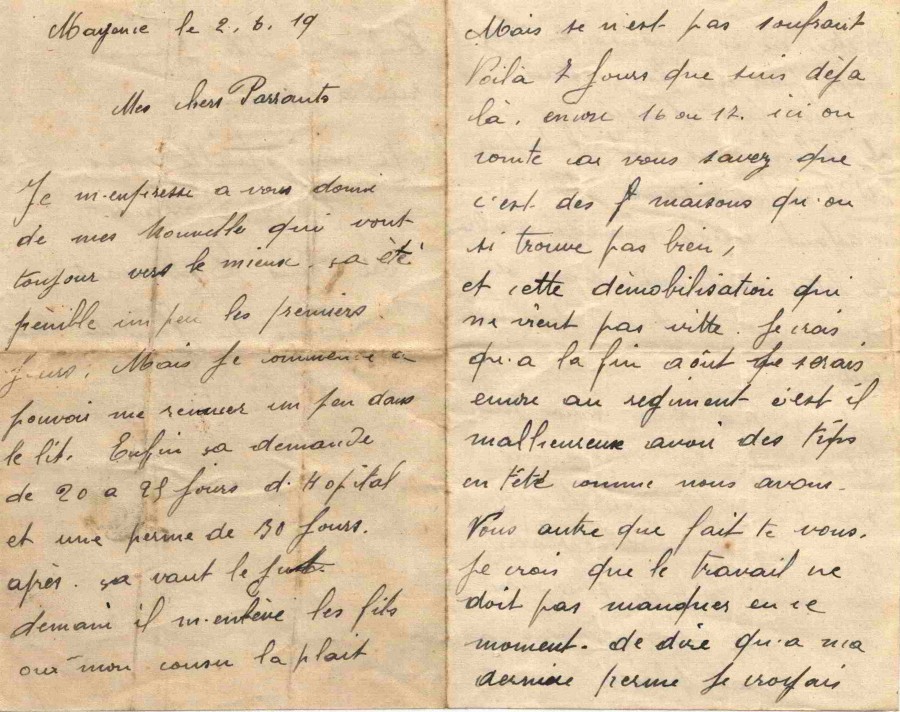 Mayence le 2. 6. 19
Mes chers Parrants
Je m'enpresse a vous donné
de mes Nouvelle qui vont
toujour vers le mieux. sa été
penible un peu les premiers
jours. Mais je commence a
pouvoir me remuer un peu dans
le lit. Enfin sa demande
de 20 a 25 jours d'Hopital
et une perme de 30 jours.
après. sa vaut le jus
demain il m'enlève les fils
ou mon cousu la plait
Mais se n'est pas soufrant
Voilà 7 jours que suis déja
là. encore 16 ou 17. ici on
comte car vous savez que
c'est des maisons qu'on
si trouve pas bien,
et cette démobilisation qui
ne vient pas vitte. Je crois
qu'a la fin aôut je serais
encore au regiment c'est il
malheureux avoir des tips
en tété comme nous avons.
Vous autre que fait te vous.
Je crois que le travail ne
doit pas manquer en ce
moment. de dire qu'a ma
derniere perme je croyais